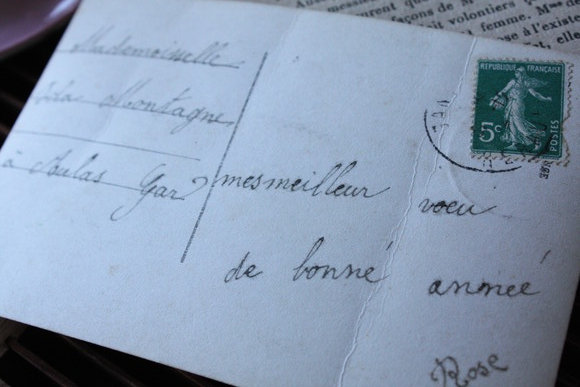 Mademoiselle
Montagne
à Aulas Gard
mesmeilleur voeu
de bonné année
Rose
REPUBLIQUE FRANÇAISE
5c
POSTES
façons de
volontiers
femme. Mme
elle